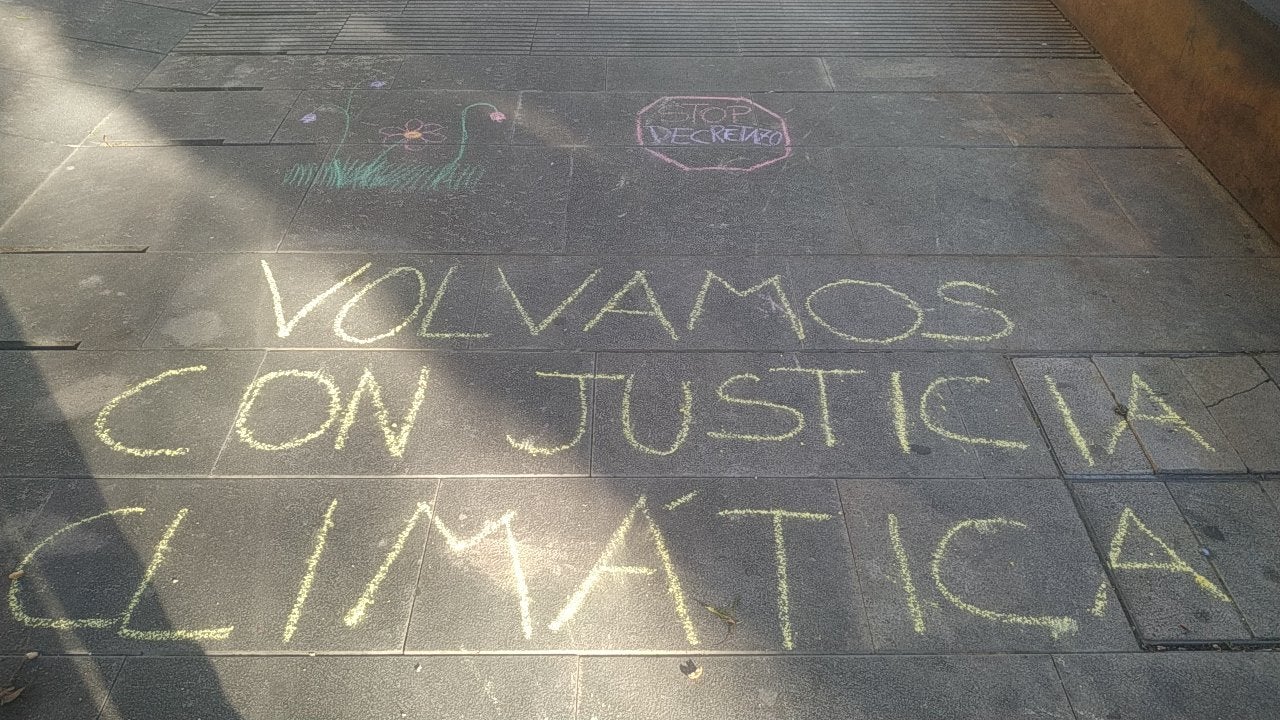 STOP
DECRETAZO
VOLVAMOS
CON JUSTICIA
CLIMÁTICA